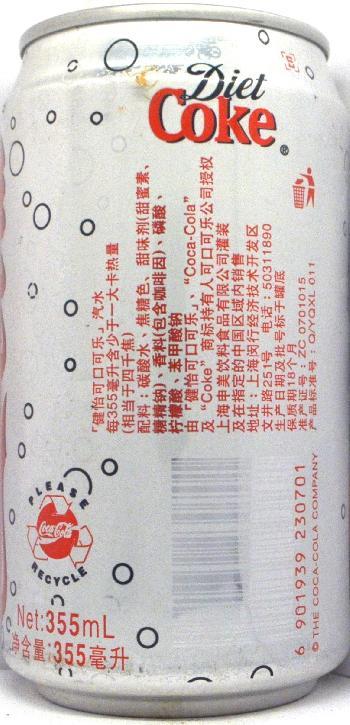 Diet
Coke®
「健怡可口可乐」汽水
每355毫升含少于一大卡热量
(相当于四千焦)
配料：碳酸水、焦糖色、甜味剂(甜蜜素、
糖精钠)、香料(包含咖啡因)、磷酸、
柠檬酸、苯甲酸钠
由“健怡可口可乐”、“Coca-Cola”
及“Coke”商标持有人可口可乐公司授权
上海申美饮料食品有限公司灌装
及在指定的中国区域内销售
地址：上海闵行经济技术开发区
文井路251号 电话：50311890
生产日期及批号标于罐底
保质期18个月
准产证号：ZC 0701015
产品标准号：Q/YQXL 011
PLEASE
Coca-Cola
RECYCLE
Net:355mL
净含量:355毫升
6 901939 230701
© THE COCA-COLA COMPANY